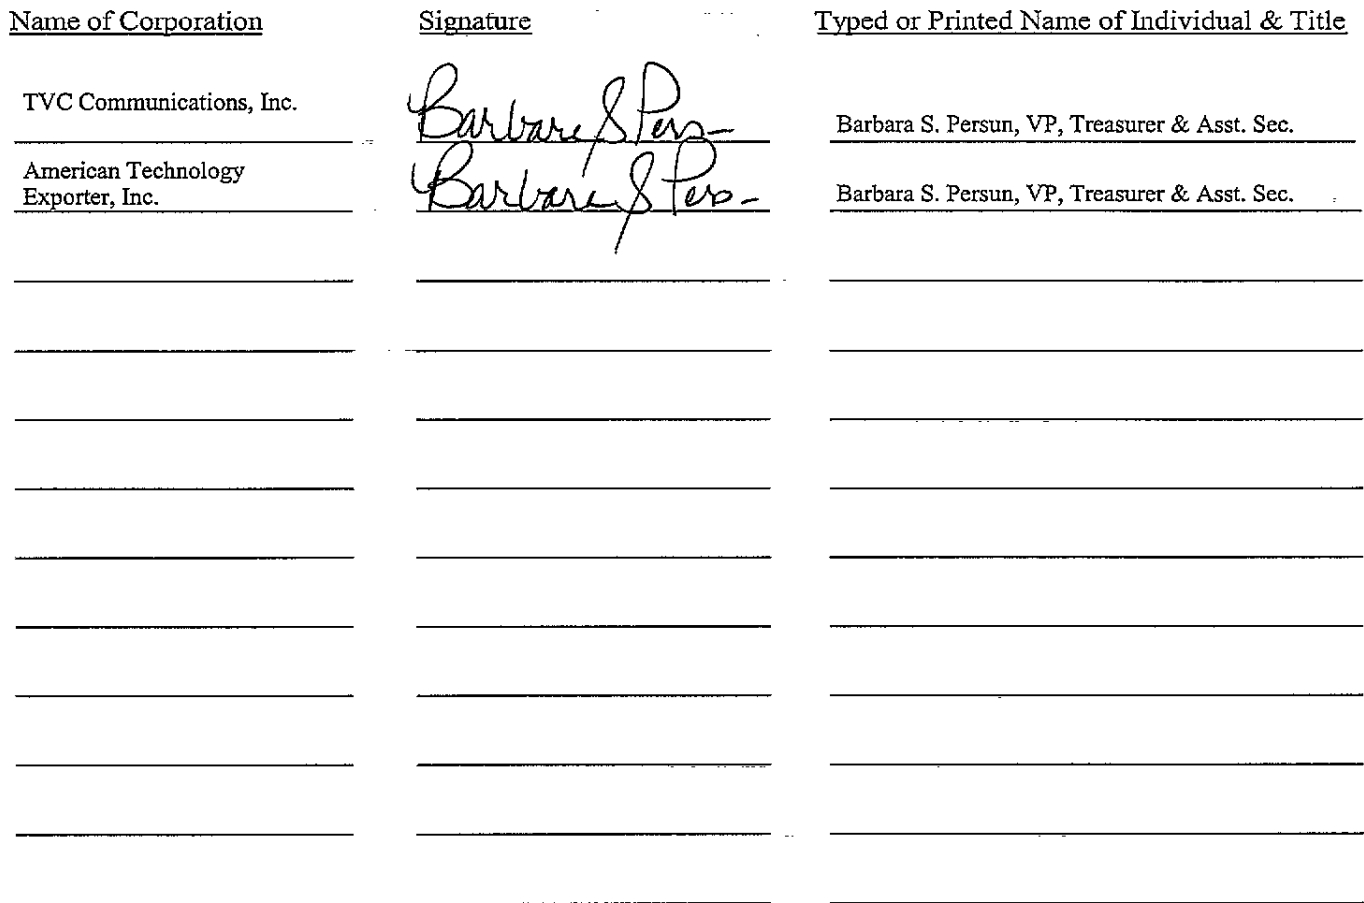 Name of Corporation Signature Typed or Printed Name of Individual & Title
TVC Communications, Inc. Barbara S Pers Barbara S. Persun, VP, Treasurer & Asst. Sec.
American Technology
Exporter, Inc. Barbara S Pers Barbara S. Persun, VP, Treasurer & Asst. Sec.